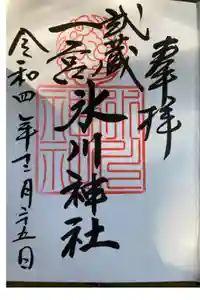 奉拝
武蔵
一宮
氷川神社
令和四年十二月二十五日